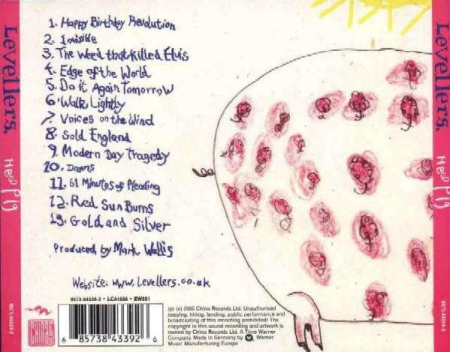 1. Happy Birthday Revolution
2. Invisible
3. The Weed that Killed Elvis
4. Edge of the World
5. Do it Again Tomorrow
6. Walk Lightly
7. Voices on the Wind
8. Sold England
9. Modern Day Tragedy
10. Dreams
11. 61 Minutes of Pleading
12. Red Sun Burns
13. Gold and Silver
Produced by Mark Wallis
Website: www.Levellers.co.uk
8573-84339-2 • LC01856 • EW851
6 85738 43392 6
(p) (c) 2000 China Records Ltd. Unauthorised
copying, hiring, lending, public performance and
broadcasting of this recording prohibited. The
copyright in this sound recording and artwork is
owned by China Records Ltd. A Time Warner
Company. Made in Germany by Warner
Music Manufacturing Europe
Levellers.
Hello Pig
Levellers.
Hello Pig